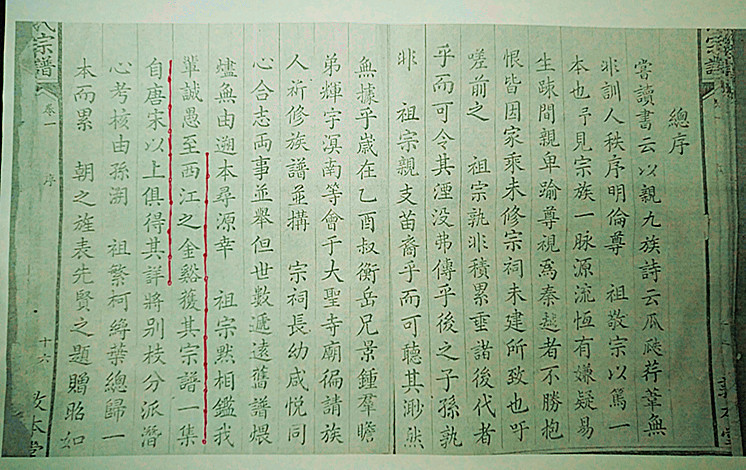 總序
嘗讀書云以親九族詩云瓜瓞荇葦無
非訓人秩序明倫尊 祖敬宗以篤一
本也予見宗族一脉源流恆有嫌疑易
生疎間親卑踰尊視爲秦越者不勝抱
恨皆因家乘未修宗祠未建所致也吁
嗟前之 祖宗孰非積累垂諸後代者
乎而可令其湮没弗傳乎後之子孫孰
非 祖宗親支苗裔乎而可聽其渺然
無據乎歲在乙酉叔衡岳兄景鍾羣瞻
弟輝宇溟南等會于大聖寺廟徧請族
人祈修族譜並搆 宗祠長幼咸悦同
心合志兩事並舉但世數遞遠舊譜煨
燼無由遡本尋源幸 祖宗黙相鑑我
輩誠愚至西江之金谿獲其宗譜一集
自唐宋以上俱得其詳將别枝分派潛
心考核由孫溯 祖繁柯縟華總歸一
本而累 朝之旌表先賢之題贈昭如
宗譜 卷一 序 十六 敦本堂